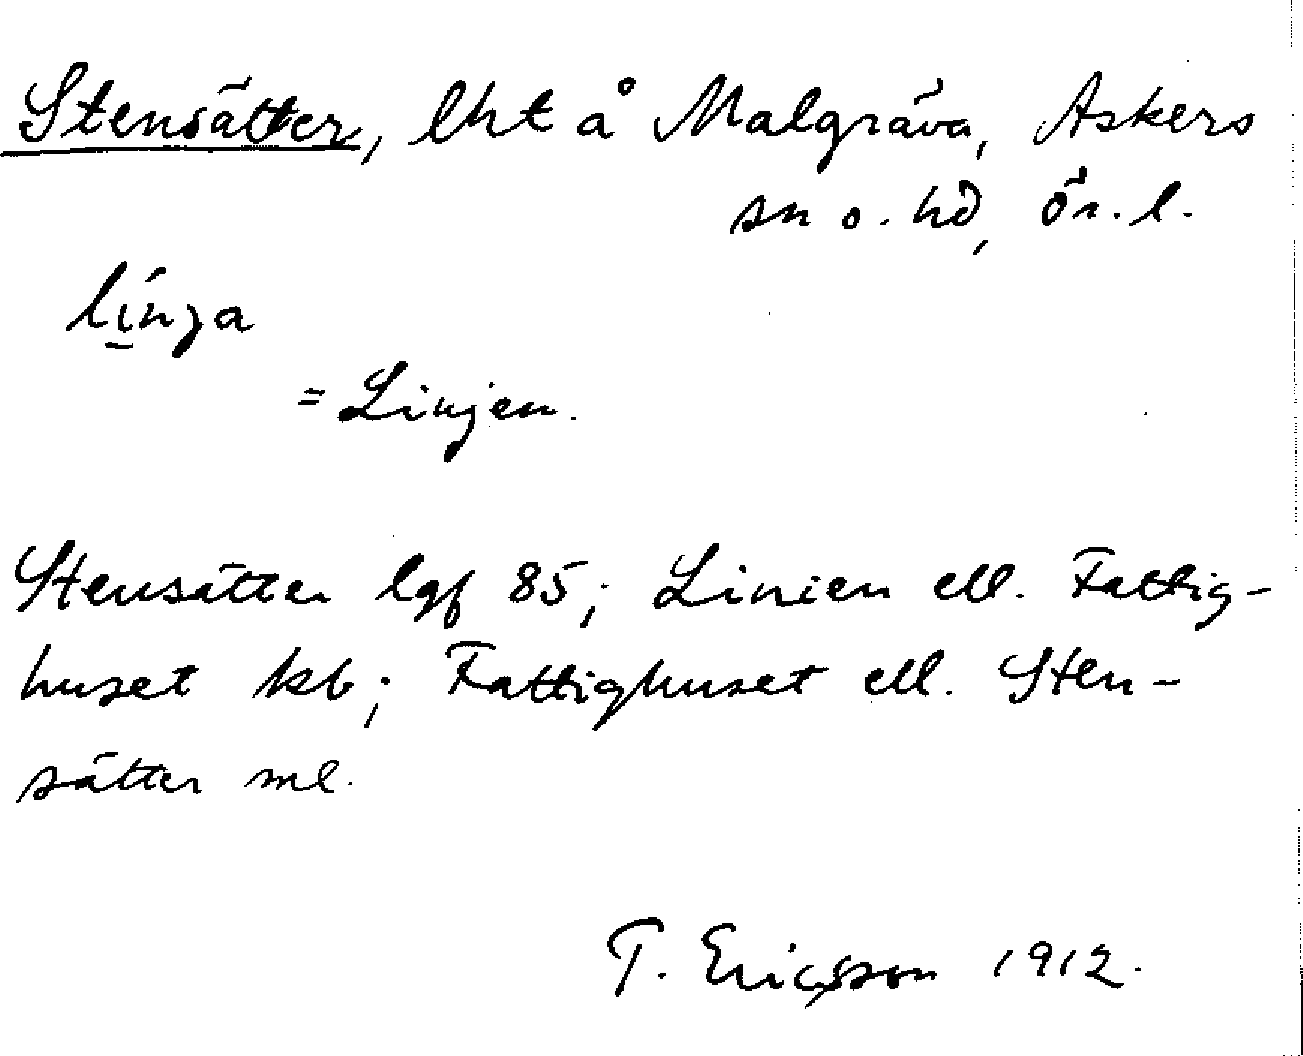 Stensätter, lht å Malgräva, Askers
sn o. hd, Ör. l.
línja
= Linjen.
Stensätter lgf 85; Linien ell. Fattig-
huset kb; Fattighuset ell. Sten-
sätter ml.
T. Ericsson 1912.